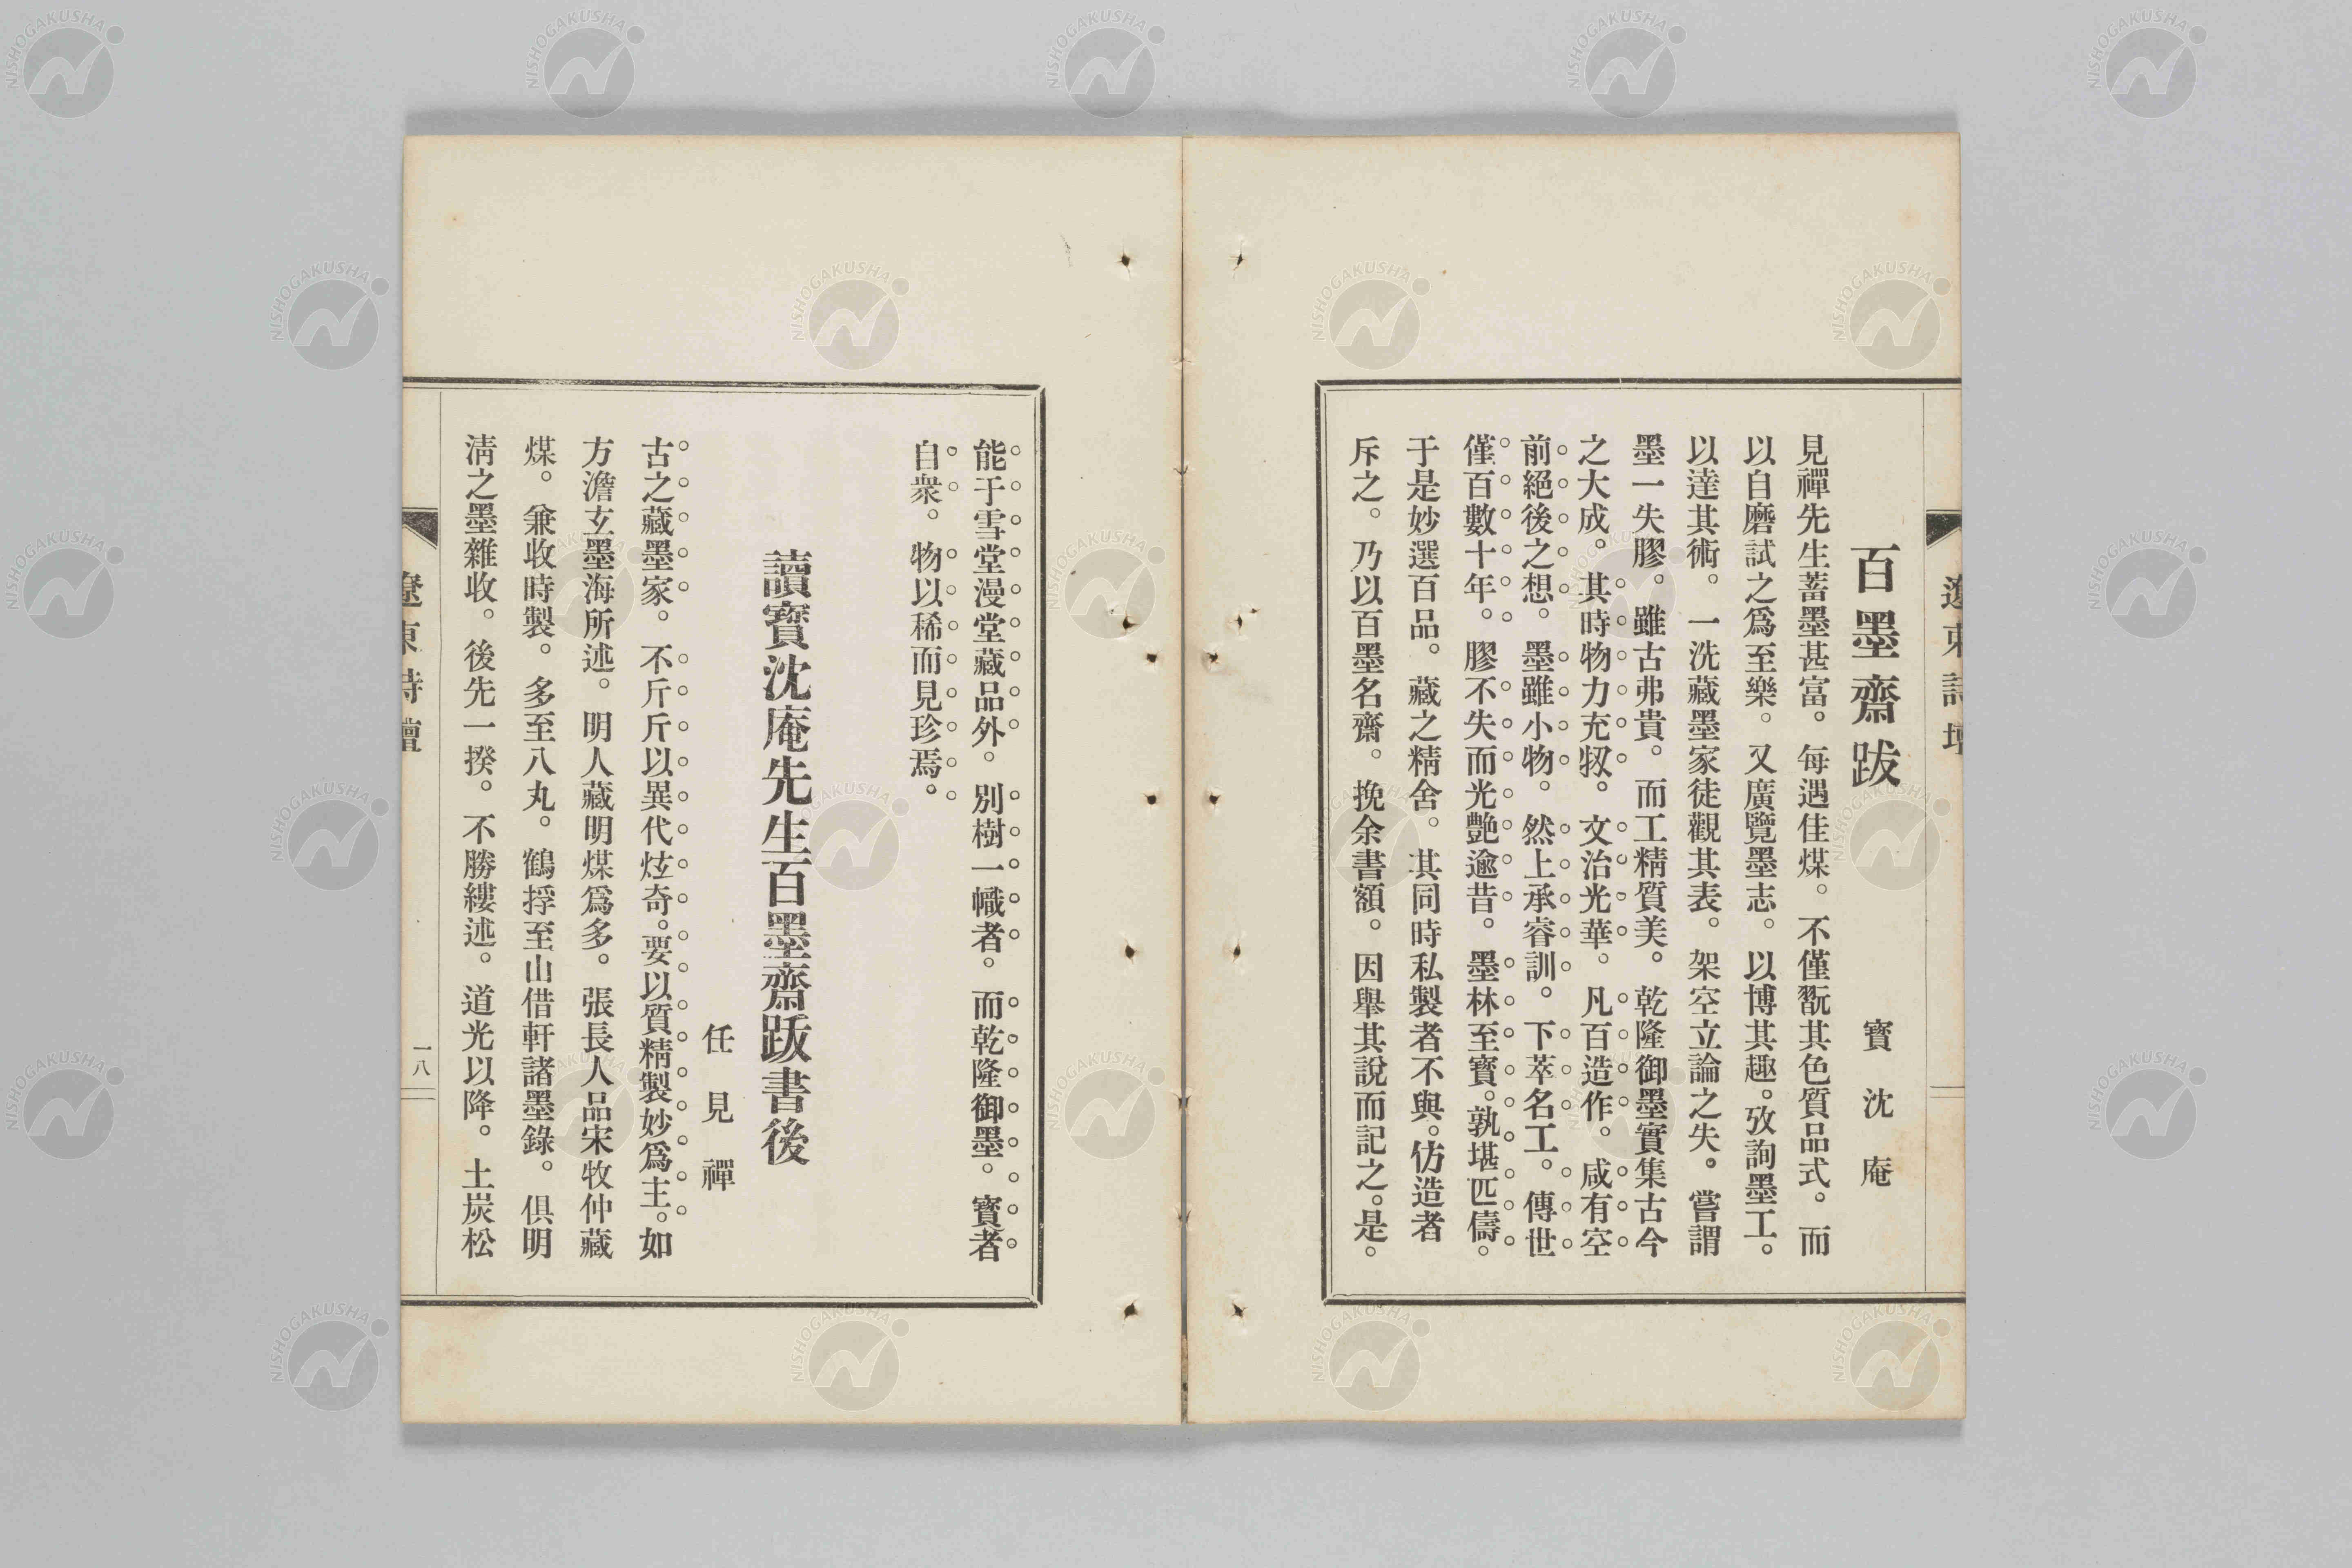 百墨齋跋
寳沈庵
見禪先生蓄墨甚富。每遇佳煤。不僅翫其色質品式。而
以自磨試之爲至樂。又廣覽墨志。以博其趣。攷詢墨工。
以達其術。一洗藏墨家徒觀其表。架空立論之失。嘗謂
墨一失膠。雖古弗貴。而工精質美。乾隆御墨實集古今
之大成。其時物力充牣。文治光華。凡百造作。咸有空
前絕後之想。墨雖小物。然上承睿訓。下萃名工。傳世
僅百數十年。膠不失而光艷逾昔。墨林至寳。孰堪匹儔。
于是妙選百品。藏之精舍。其同時私製者不與。仿造者
斥之。乃以百墨名齋。挽余書額。因舉其說而記之。是。
能于雪堂漫堂藏品外。別樹一幟者。而乾隆御墨。寳者
自衆。物以稀而見珍焉。
讀寳沈庵先生百墨齋跋書後
任見禪
古之藏墨家。不斤斤以異代炫奇。要以質精製妙爲主。如
方澹玄墨海所述。明人藏明煤爲多。張長人品宋牧仲藏
煤。兼收時製。多至八丸。鶴捊至山借軒諸墨錄。俱明
淸之墨雜收。後先一揆。不勝縷述。道光以降。土炭松
遼東詩壇
一八
遼東詩壇
NISHOGAKUSHA